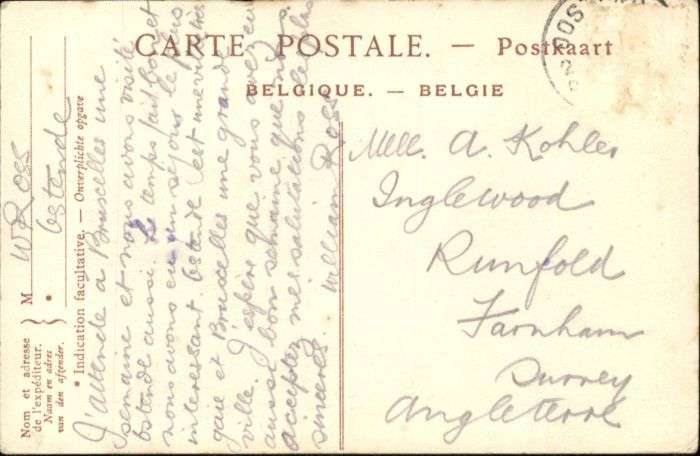 CARTE POSTALE. — Postkaart
BELGIQUE. — BELGIE
Nom et adresse
de l'expéditeur.
Naam en adres
van den afzender.
M W Ross
• Ostende
• Indication facultative. — Onverplichte opgave
J'attende a Bruxelles une
semaine et nous avons visité
Ostende aussi. Le temps fait bon et
nous avons eu un séjour le plus
interessant. Ostende est une ville très
gaie et Bruxelles une grande
ville. J'espère que vous avez eu
aussi bon semaine que nous.
acceptez mes salutations les plus
sincères. William Ross
Mlle. A. Kohler
Inglewood
Runfold
Farnham
Surrey
Angleterre
OOS